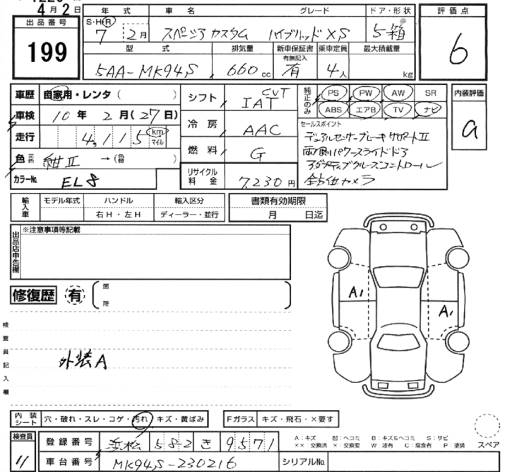 4月2日
出品番号
199
年式 車名 グレード ドア・形状
S・H・R
7年2月 スペーシア カスタム ハイブリッドXS 5箱
型式 排気量 新車保証書 乗車定員 最大積載量
有無記入
5AA-MK94S 660cc 有 4人 kg
評価点
6
車歴 自家用・レンタ( )
車検 10年2月(27日)
走行 4,115 km マイル
色 元色 紺II →(色 )
カラーNo. EL8
シフト CVT IAT
冷房 AAC
燃料 G
リサイクル料金 7,230円
純正のみ
PS PW AW SR
ABS エアB TV ナビ
セールスポイント
デュアルセンサーブレーキサポートII
両側パワースライドドア
アダプティブクルーズコントロール
全方位カメラ
内装評価
a
輸入車 モデル年式 ハンドル 輸入区分
年 右H・左H ディーラー・並行
書類有効期限
月 日迄
出品店申告欄
※注意事項等記載
修復歴 有
箇所
検査員記入欄
外装A
A1 A1
内装シート 穴・破れ・スレ・コゲ・汚れ・キズ・黄ばみ
Fガラス キズ・飛石・×要す
A:キズ U:ヘコミ B:キズ&ヘコミ S:サビ
××交換済 ×交換 W:波有 C:腐食有 P:塗装
スペア
検査員
11
登録番号 浜松 582 き 9571
車台番号 MK94S-230216
シリアルNo.